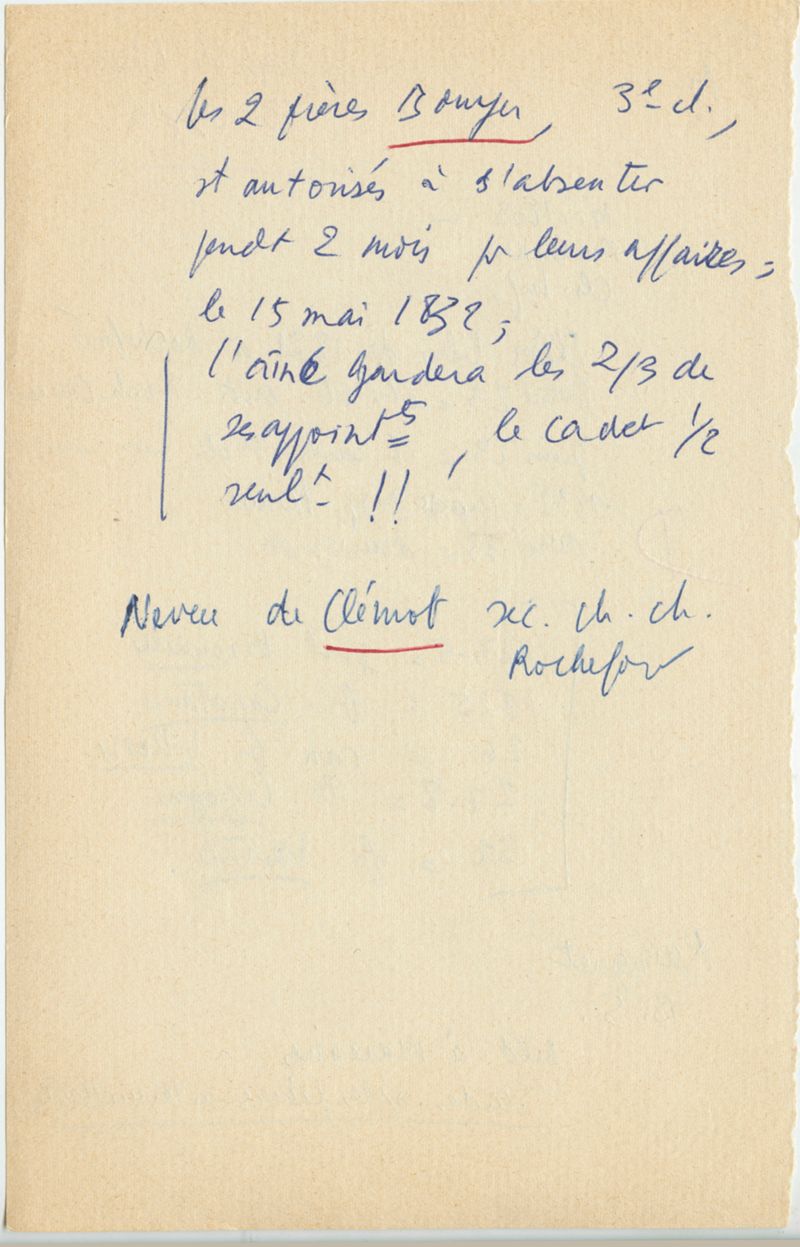 les 2 frères Bouyer, 3e cl.,
st autorisés à s'absenter
pendt 2 mois pr leurs affaires,
le 15 mai 1832,
l'aîné gardera les 2/3 de
ses appointts, le cadet 1/2
seult !!
Neveu de Clémot sec. ch. ch.
Rochefort